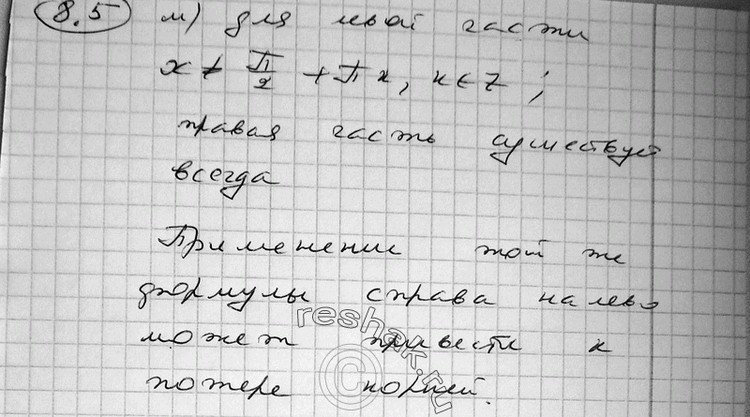 8.5 м) для левой части
x ≠ π/2 + πn, n ∈ Z;
правая часть существует
всегда
Применение той же
формулы справа налево
может привести к
потере корней.
reshak.ru
©